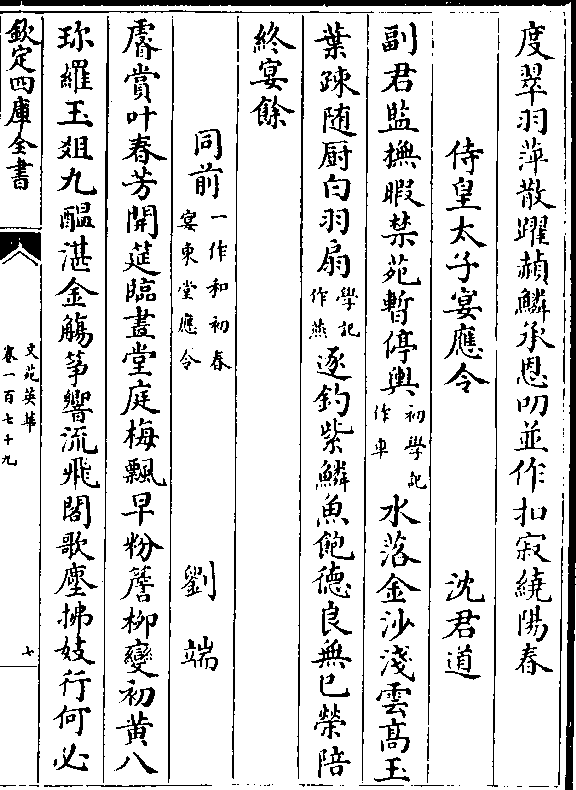 度翠羽萍散躍赬鱗承恩叨並作扣寂繞陽春
侍皇太子宴應令 沈君道
副君監撫暇禁苑暫停輿初學記作車水落金沙淺雲高玉
葉疎随厨白羽扇學記作燕逐釣紫鱗魚飽德良無已榮陪
終宴餘
同前一作和初春宴東堂應令 劉端
睿賞叶春芳開筵臨畫堂庭梅飄早粉簷柳變初黄八
珎羅玉俎九醖湛金觴筝響流飛閣歌塵拂妓行何必
欽定四庫全書
文苑英華
卷一百七十九
七